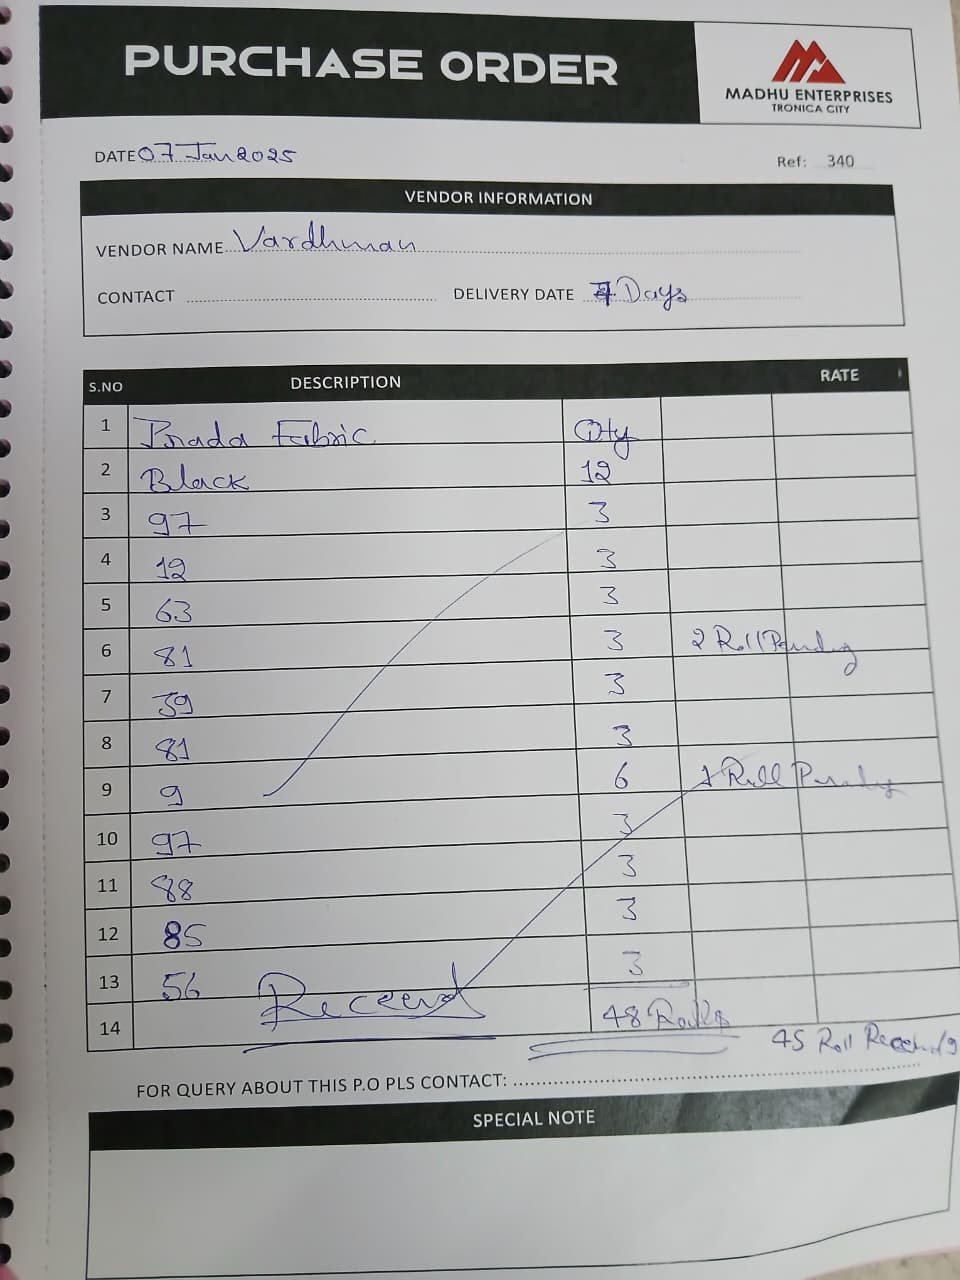 PURCHASE ORDER
MADHU ENTERPRISES
TRONICA CITY
DATE 07 Jan 2025
Ref: 340
VENDOR INFORMATION
VENDOR NAME Vardhman
CONTACT DELIVERY DATE 7 Days
S.NO DESCRIPTION RATE
1 Prada Fabric Qty
2 Black 12
3 97 3
4 12 3
5 63 3
6 81 3 2 Roll Pending
7 39 3
8 81 3
9 9 6 1 Roll Pending
10 97 3
11 88 3
12 85 3
13 56 3
14 Received 48 Rolls
45 Roll Received
FOR QUERY ABOUT THIS P.O PLS CONTACT:
SPECIAL NOTE